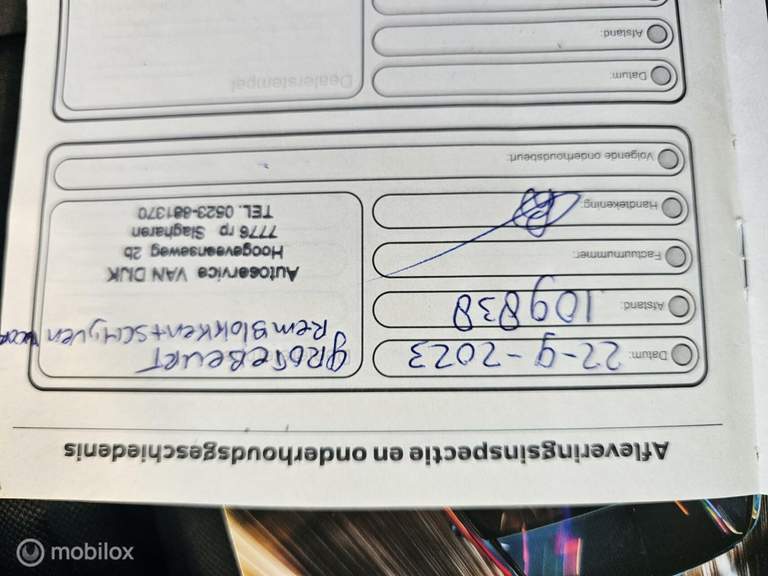 Afleveringsinspectie en onderhoudsgeschiedenis
Datum: 22-9-2023
Afstand: 109838
Factuurnummer:
Handtekening:
Volgende onderhoudsbeurt:
groteBeurt
RemBlokken+Schijven voor
Autoservice VAN DIJK
Hoogeveenseweg 2b
7776 rp Slagharen
TEL. 0523-681370
Datum:
Afstand:
Dealerstempel
mobilox